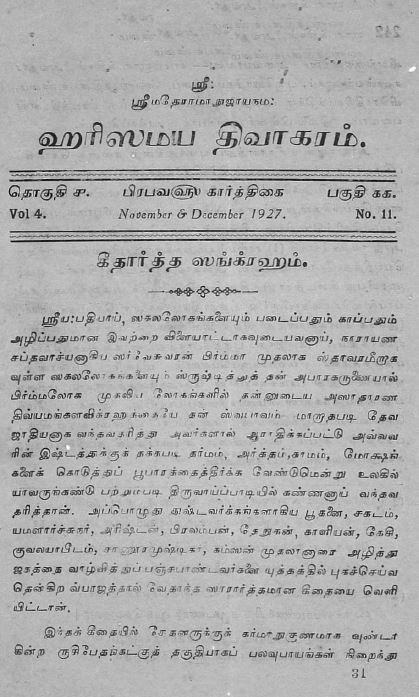 ஸ்ரீ:
ஸ்ரீமதேராமாநுஜாயநம:
ஹரிஸமய திவாகரம்.
தொகுதி ௪. பிரபவ௵ கார்த்திகை பகுதி கக.
Vol 4. November & December 1927. No. 11.
கீதார்த்த ஸங்க்ரஹம்.
ஸ்ரீய:பதியாய், ஸகலலோகங்களையும் படைப்பதும் காப்பதும்
அழிப்பதுமான இவற்றை விளையாட்டாகவுடையவனாய், நாராயண
சப்தவாச்யனாகிய ஸர்வேசுவரன் பிரம்மா முதலாக ஸ்தாவரமீறாக
வுள்ள ஸகலலோகங்களையும் ஸ்ருஷ்டித்துத் தன் அபாரகருணையால்
பிரம்மலோக முதலிய லோகங்களில் தன்னுடைய அஸாதாரண
திவ்யமங்களவிக்ரஹத்தையே தன் ஸ்வபாவம் மாறாதபடி தேவ
ஜாதியனாக வந்தவதரித்து அவர்களால் ஆராதிக்கப்பட்டு அவ்வவ
ரின் இஷ்டத்துக்குத் தக்கபடி தர்மம், அர்த்தம்,காமம், மோக்ஷங்
களைக் கொடுத்துப் பூபாரத்தைத்தீர்க்க வேண்டுமென்று உலகில்
யாவருங்கண்டு பற்றும்படி திருவாய்ப்பாடியில் கண்ணனாய் வந்தவ
தரித்தான். அப்பொழுது துஷ்டவர்க்கங்களாகிய பூதனை, சகடம்,
யமளார்ச்சுநர், அரிஷ்டன், பிரலம்பன், தேநுகன், காளியன், கேசி,
குவலயாபீடம், சாணூரமுஷ்டிகர், கம்ஸன் முதலானாரை அழித்து
ஜகத்தை வாழ்வித்துப் பஞ்சபாண்டவர்களை யுத்தத்தில் புகச்செய்வ
தென்கிற வ்யாஜத்தால் வேதாந்த ஸாரார்த்தமான கீதையை வெளி
யிட்டான்.
இந்தக் கீதையில் சேதனருக்குக் கர்மாநுகுணமாக வுண்டா
கின்ற ருசிபேதங்கட்குத் தகுதியாகப் பலவுபாயங்கள் நிறைந்து
31